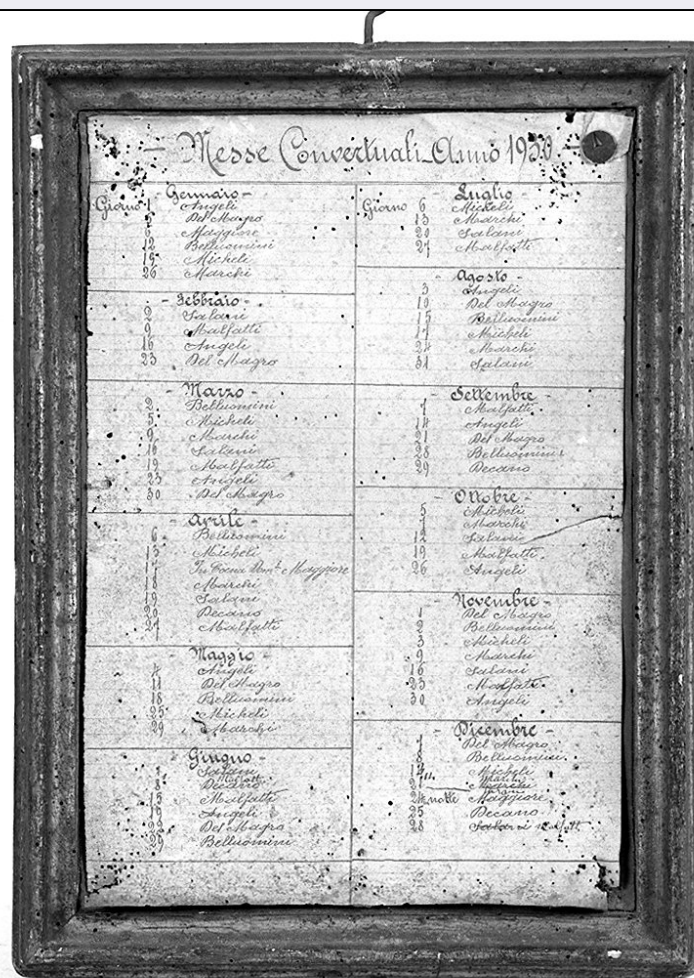 - Messe Conventuali - Anno 1930 -
- Gennaro -
Giorno 1 Angeli
5 Del Magro
6 Maggiore
12 Belluomini
19 Micheli
26 Marchi
- Febbraio -
2 Salani
9 Malfatti
16 Angeli
23 Del Magro
- Marzo -
2 Belluomini
5 Micheli
9 Marchi
16 Salani
19 Malfatti
23 Angeli
30 Del Magro
- Aprile -
6 Belluomini
13 Micheli
17 In Coena Maggiore
18 Marchi
19 Salani
20 Decano
27 Malfatti
- Maggio -
4 Angeli
11 Del Magro
18 Belluomini
25 Micheli
29 Marchi
- Giugno -
Salani
Decano
15 Malfatti
Angeli
22 Del Magro
29 Belluomini
- Luglio -
Giorno 6 Micheli
13 Marchi
20 Salani
27 Malfatti
- Agosto -
3 Angeli
10 Del Magro
15 Belluomini
17 Micheli
24 Marchi
31 Salani
- Settembre -
7 Malfatti
14 Angeli
21 Del Magro
28 Belluomini
29 Decano
- Ottobre -
5 Micheli
Marchi
12 Salani
19 Malfatti
26 Angeli
- Novembre -
1 Del Magro
2 Belluomini
3 Micheli
9 Marchi
16 Salani
23 Malfatti
30 Angeli
- Dicembre -
Del Magro
8 Belluomini
14 Micheli
21 Marchi
24 notte Maggiore
25 Decano
28 Salani